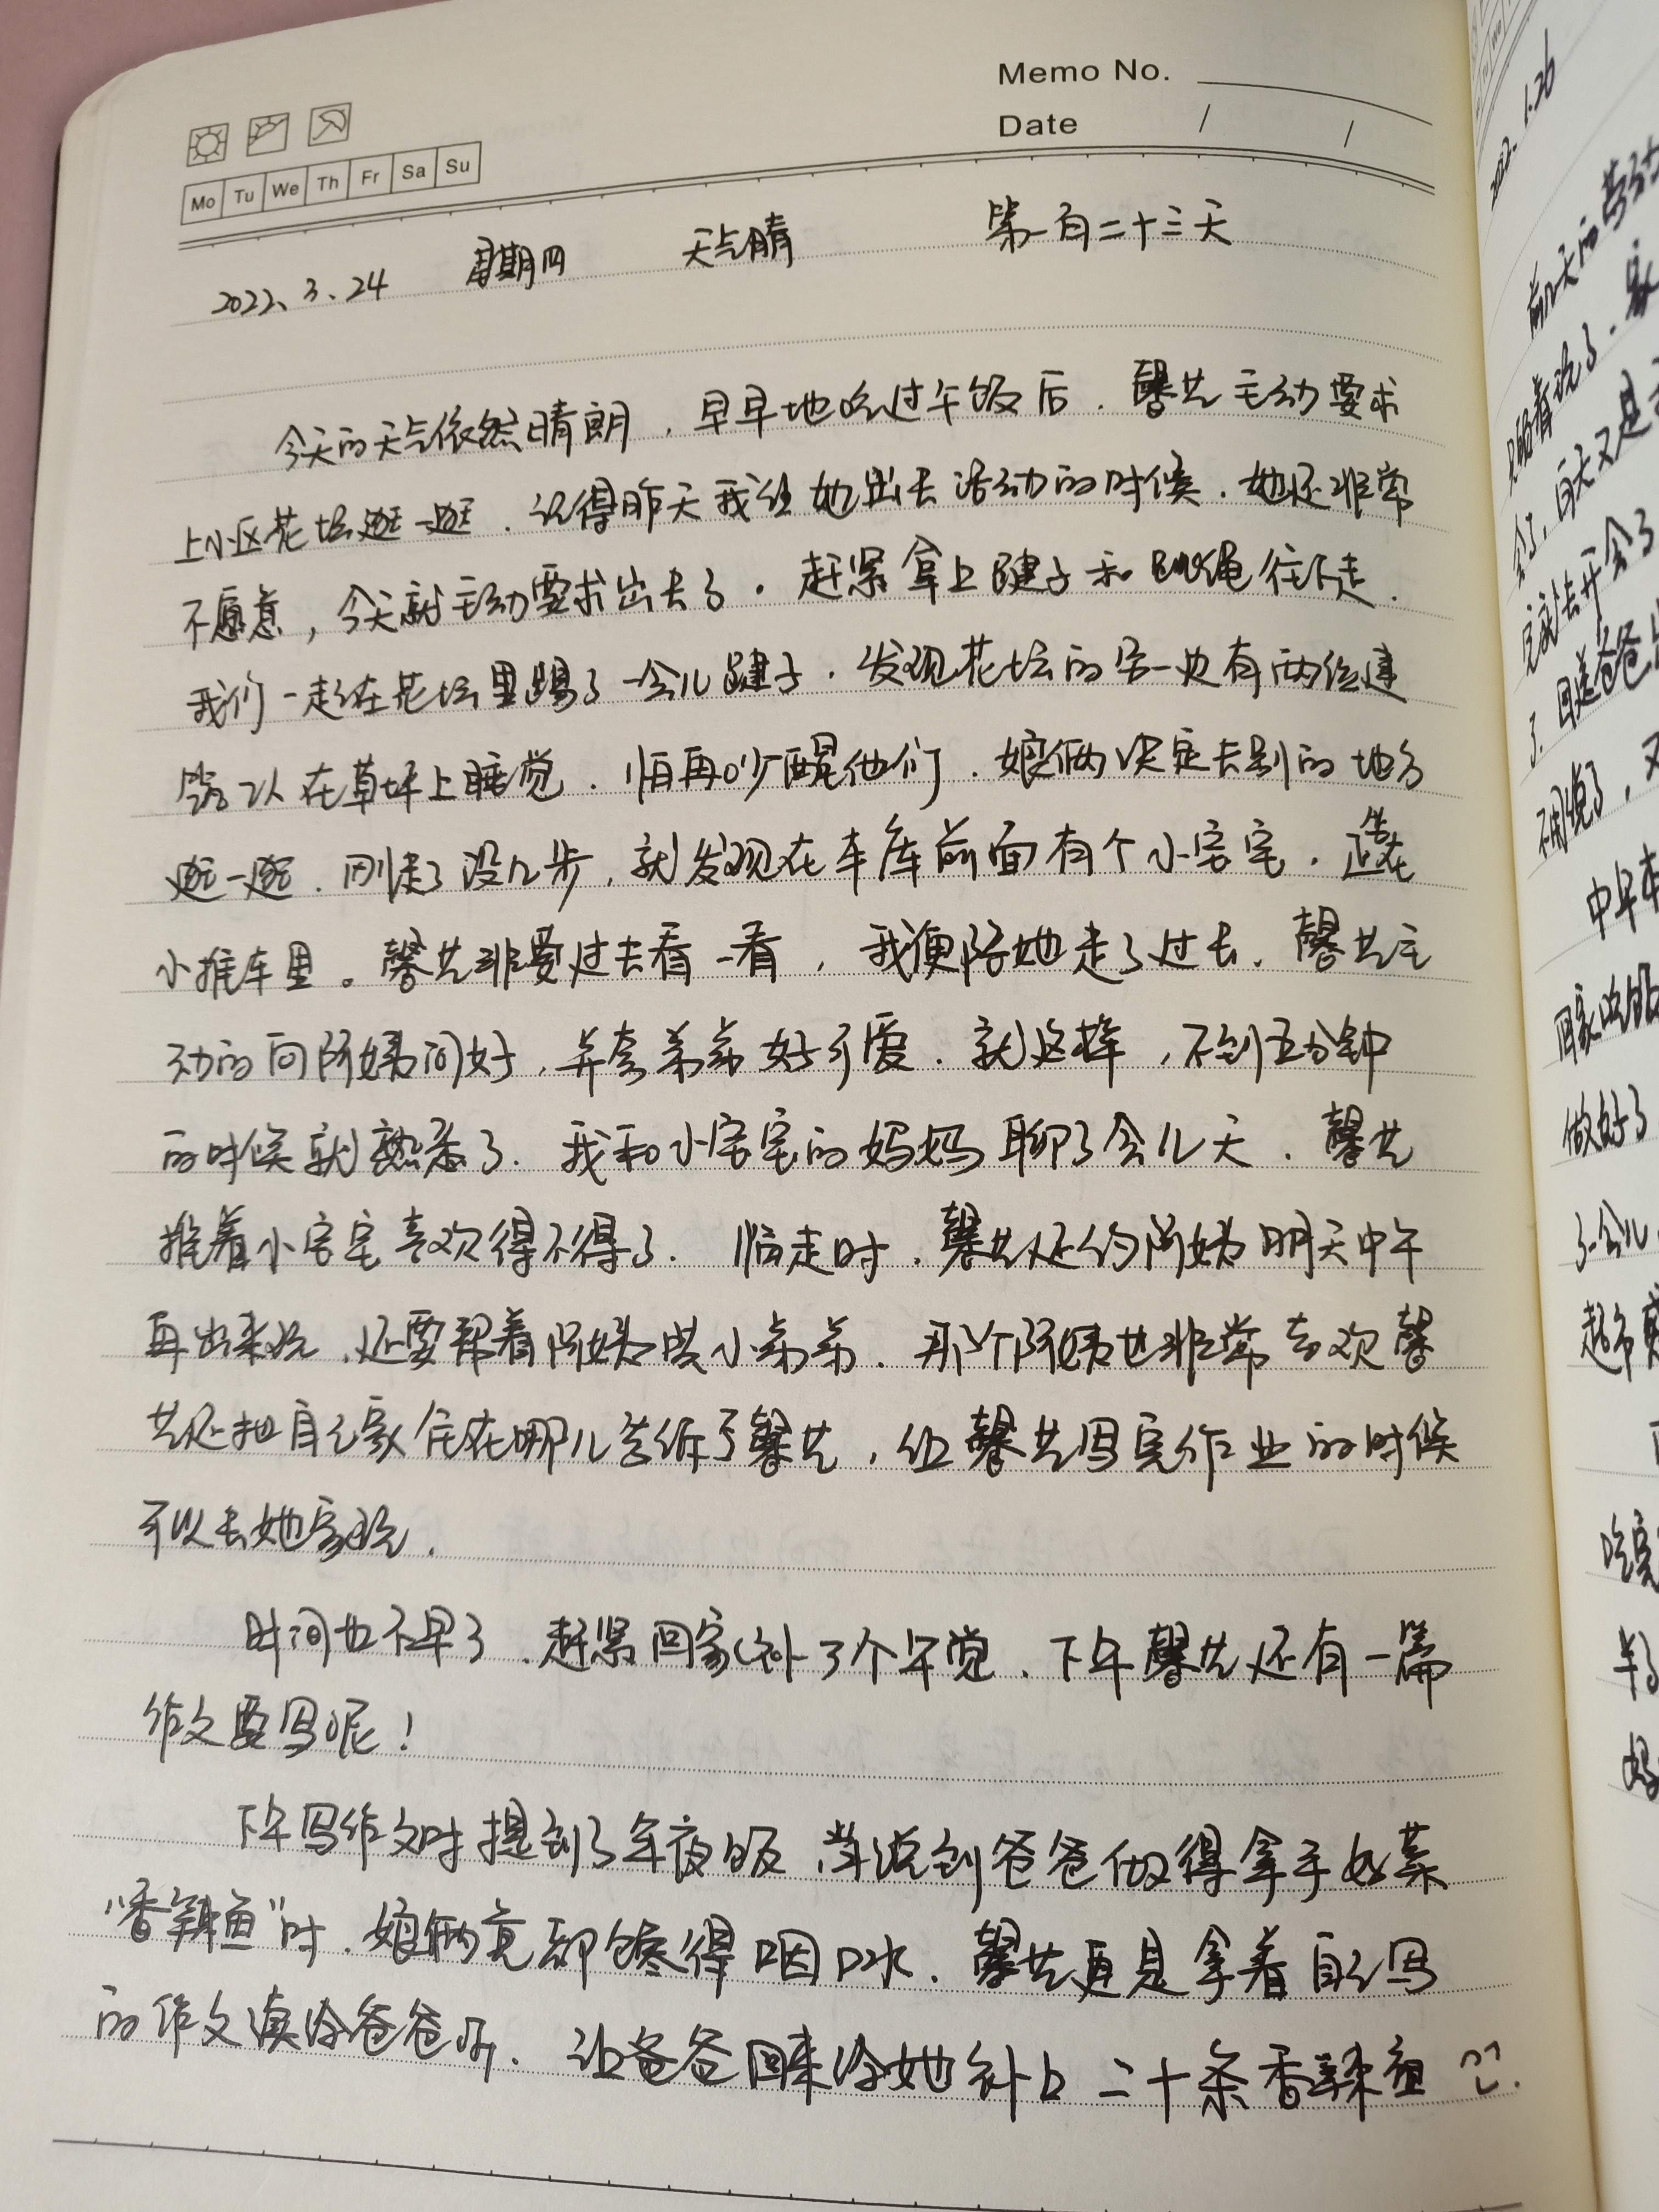 Memo No.
Date / /
Mo Tu We Th Fr Sa Su
2022、3、24 星期四 天气晴 第一百二十三天
今天的天气依然晴朗，早早地吃过午饭后，馨艺主动要求
上小区花坛逛一逛，记得昨天我让她出去活动的时候，她还非常
不愿意，今天就主动要求出去了。赶紧拿上毽子和跳绳往下走，
我们一起在花坛里踢了一会儿毽子，发现花坛的另一边有两位建
筑工人在草坪上睡觉，怕再吵醒他们，娘俩决定去别的地方
逛一逛，刚走了没几步，就发现在车库前面有个小宝宝，正在
小推车里。馨艺非要过去看一看，我便陪她走了过去，馨艺主
动的向阿姨问好，并夸弟弟好可爱，就这样，不到五分钟
的时候就熟悉了，我和小宝宝的妈妈聊了会儿天，馨艺
推着小宝宝喜欢得不得了，临走时，馨艺还约阿姨明天中午
再出来玩，还要帮着阿姨哄小弟弟，那个阿姨也非常喜欢馨
艺还把自己家住在哪儿告诉了馨艺，让馨艺写完作业的时候
可以去她家玩，
时间也不早了，赶紧回家补了个午觉，下午馨艺还有一篇
作文要写呢！
下午写作文时提到了年夜饭，当说到爸爸做得拿手好菜
“香辣鱼”时，娘俩竟都馋得咽口水，馨艺更是拿着自己写
的作文读给爸爸听，让爸爸回来给她补上二十条香辣鱼
2022. 1.26